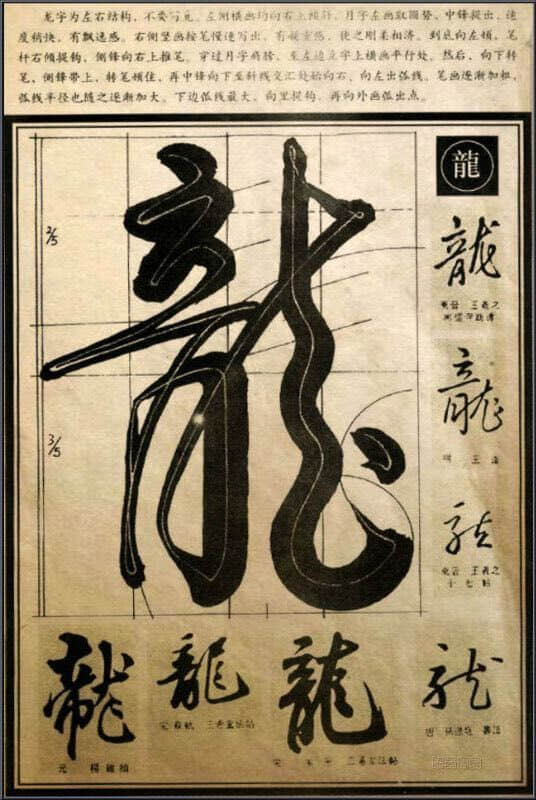 龙字为左右结构，不要写宽。左侧横画均向右上倾斜，月字左画取图势，中锋提出，速
度稍快，有飘逸感。右侧竖画按笔慢速写出，有凝重感，使之刚柔相济，到底向左顿，笔
杆右倾提钩，侧锋向右上推笔。穿过月字肩膀，至左边立字上横画平行处。然后，向下转
笔，侧锋带上，转笔顿住，再中锋向下至斜线交汇处始向右、向左出弧线。笔画逐渐加粗，
弧线半径也随之逐渐加大。下边弧线最大，向里提钩，再向外画弧出点。
龍
龍
2/5
龍
東晉 王羲之
龍
明 王
3/5
龍
東晉 王羲之
十七帖
龍
龍
龍
龍
宋 三希堂法帖
宋 三希堂法帖
元 楊維楨